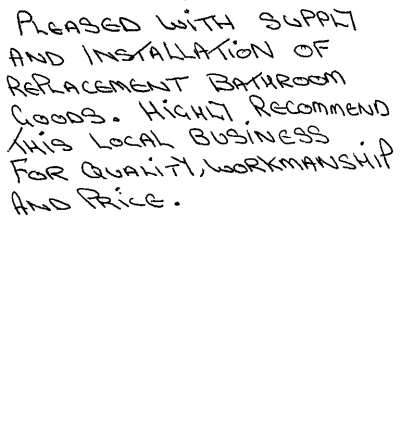 PLEASED WITH SUPPLY
AND INSTALLATION OF
REPLACEMENT BATHROOM
GOODS. HIGHLY RECOMMEND
THIS LOCAL BUSINESS
FOR QUALITY, WORKMANSHIP
AND PRICE.